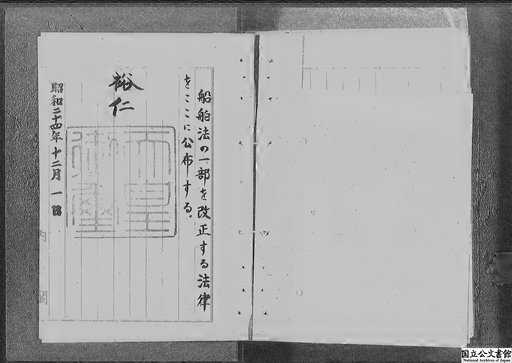 船舶法の一部を改正する法律
をここに公布する。
裕仁
天皇
御璽
昭和二十四年十二月一日
内閣
国立公文書館
National Archives of Japan